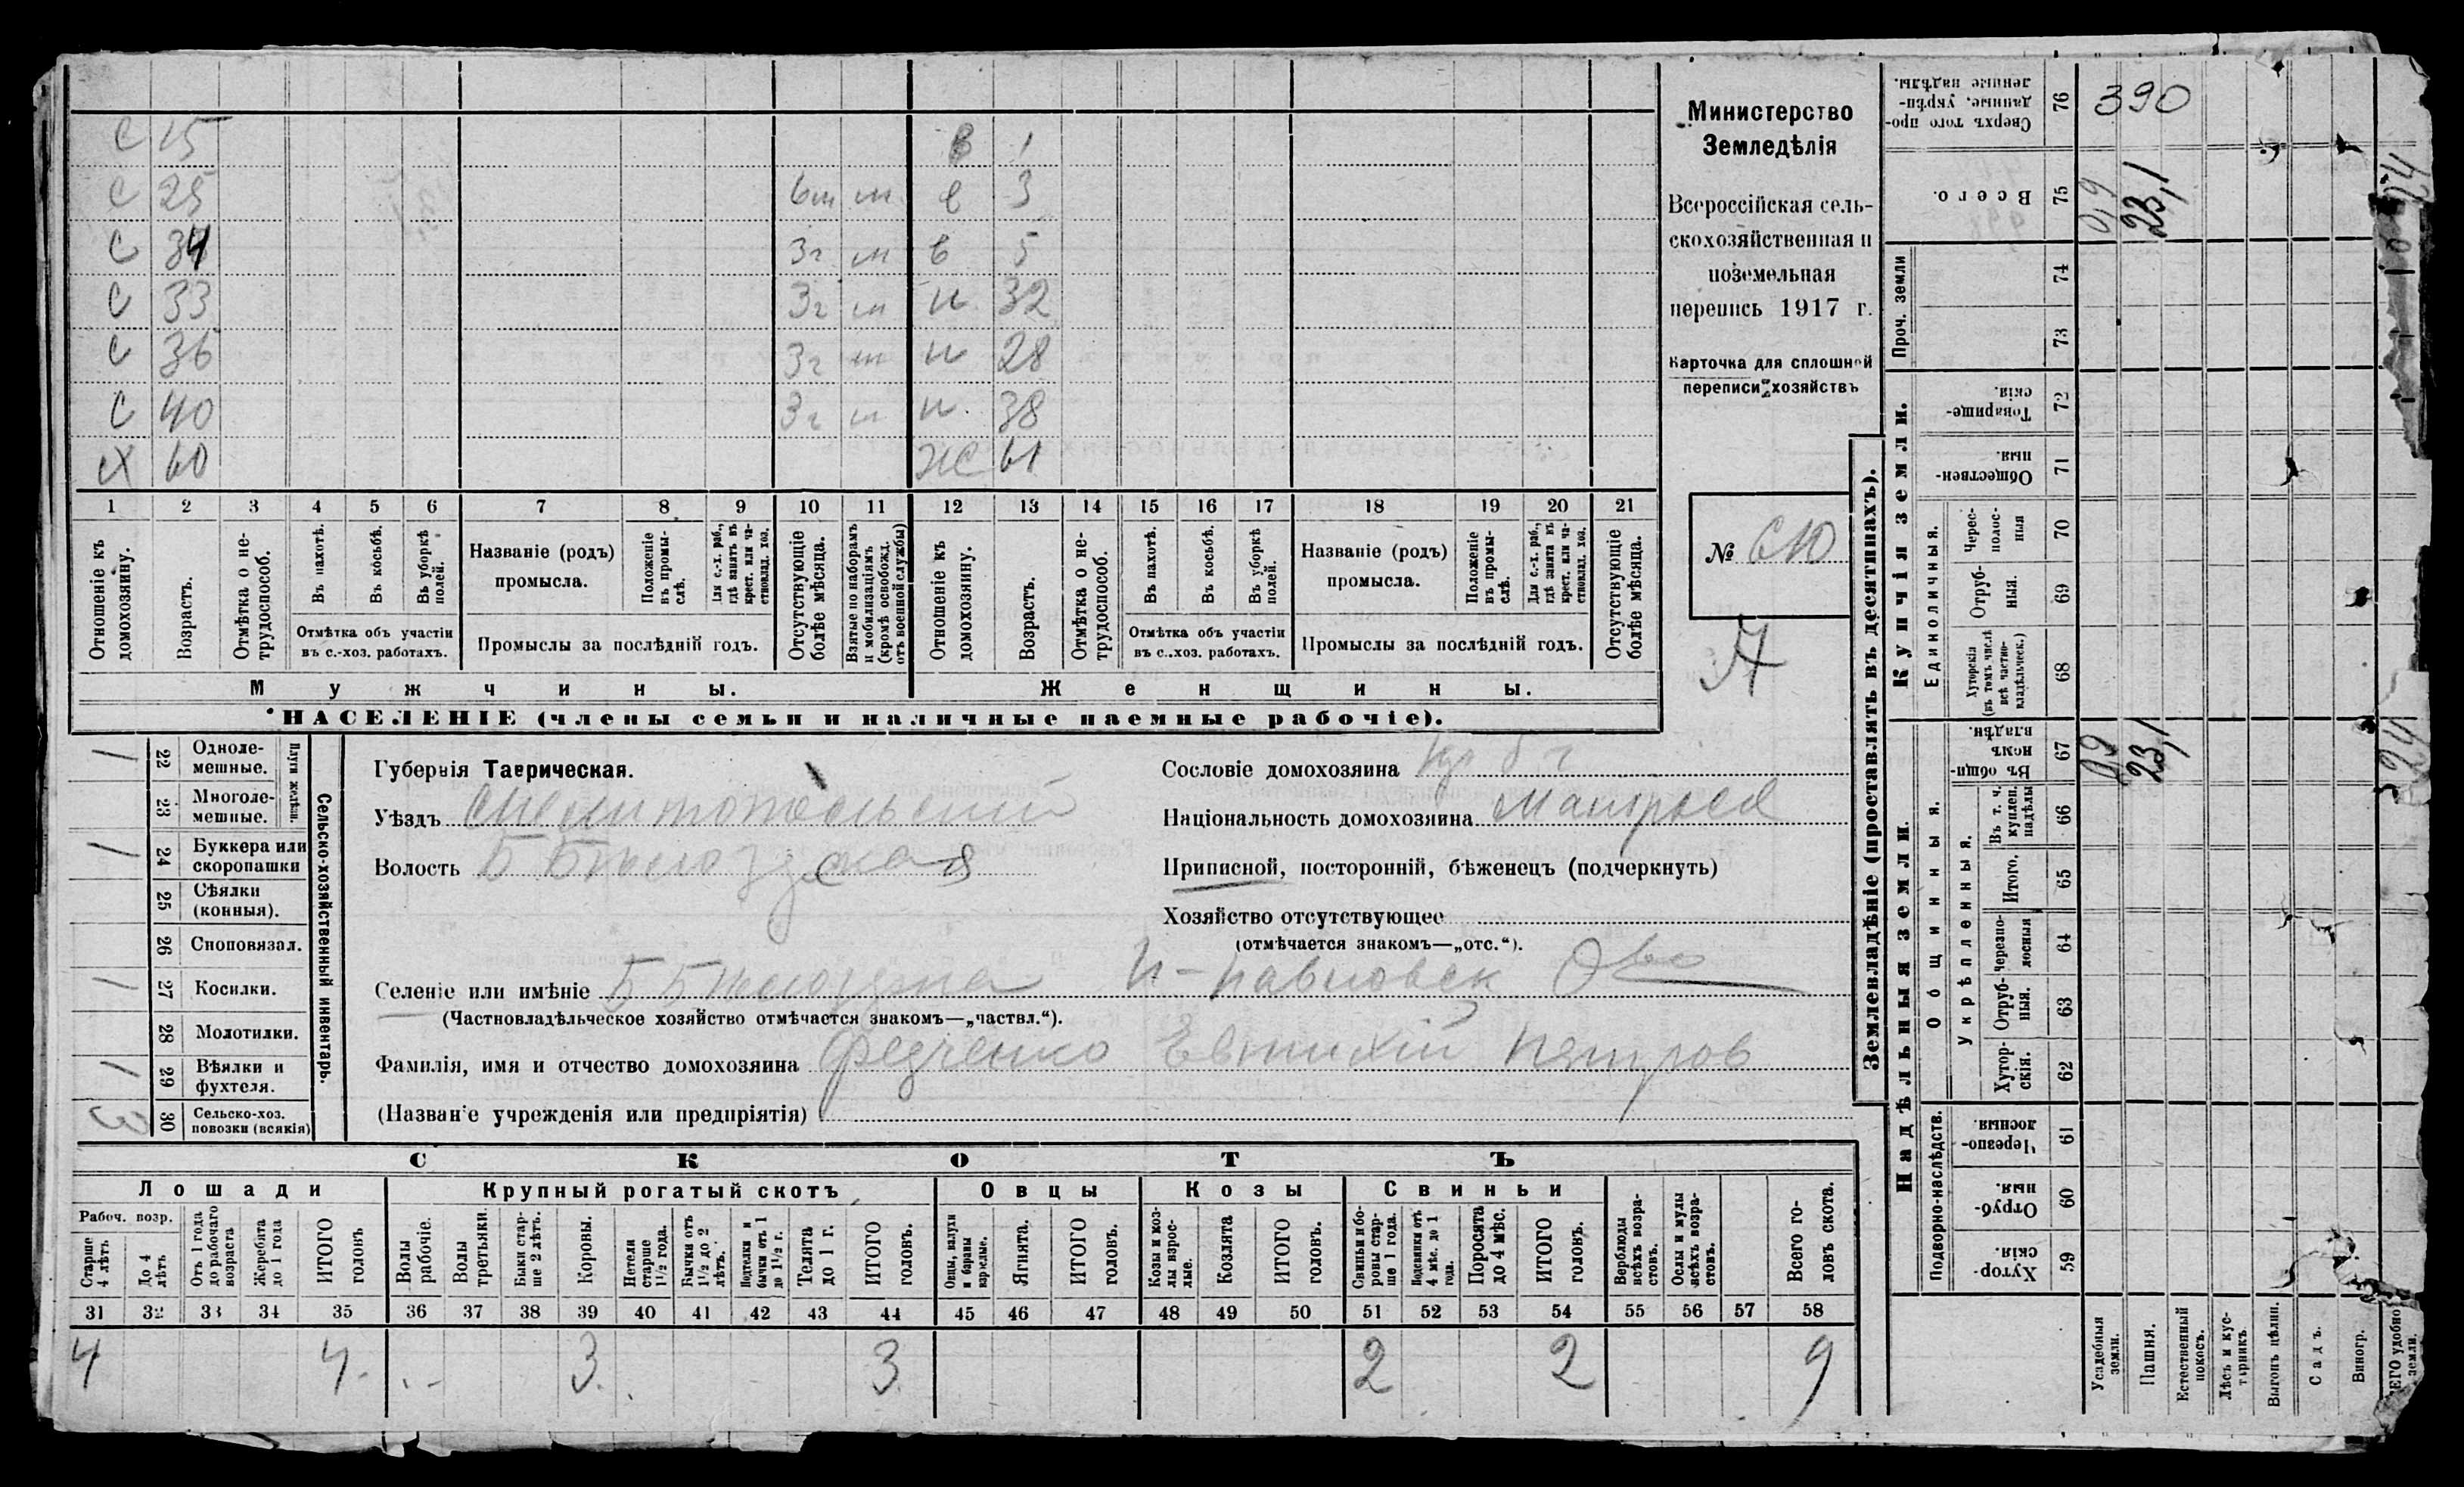 С 15 В 1
С 25 6м м В 3
С 34 3г м В 5
С 33 3г м Н 32
С 36 3г м Н 28
С 40 3г м Н. 38
Х 60 Ж 61
1 2 3 4 5 6 7 8 9 10 11 12 13 14 15 16 17 18 19 20 21
Отношеніе къ домохозяину.
Возрастъ.
Отмѣтка о не-трудоспособ.
Въ пахотѣ.
Въ косьбѣ.
Въ уборкѣ полей.
Отмѣтка объ участіи
въ с.-хоз. работахъ.
Названіе (родъ)
промысла.
Положеніе въ промы-слѣ.
Для с.-х. раб., гдѣ занятъ въ крест. или ча-стновлад. хоз.
Промыслы за послѣдній годъ.
Отсутствующіе болѣе мѣсяца.
Взятые по наборамъ и мобилизаціямъ (кромѣ освобожд. отъ военной службы)
Отношеніе къ домохозяину.
Возрастъ.
Отмѣтка о не-трудоспособ.
Въ пахотѣ.
Въ косьбѣ.
Въ уборкѣ полей.
Отмѣтка объ участіи
въ с..хоз. работахъ.
Названіе (родъ)
промысла.
Положеніе въ промы-слѣ.
Для с.-х. раб., гдѣ занята въ крест. или ча-стновлад. хоз.
Промыслы за послѣдній годъ.
Отсутствующіе болѣе мѣсяца.
Мужчины.
Женщины.
НАСЕЛЕНІЕ (члены семьи и наличные наемные рабочіе).
Министерство
Земледѣлія
Всероссійская сель-
скохозяйственная и
поземельная
перепись 1917 г.
Карточка для сплошной
переписи хозяйствъ
№ 610
А
Сельско-хозяйственный инвентарь.
Плуги желѣзн.
22 Одноле-мешные. 1
23 Многоле-мешные.
24 Буккера или скоропашки 1
25 Сѣялки (конныя).
26 Сноповязал.
27 Косилки. 1
28 Молотилки.
29 Вѣялки и фухтеля. 1
30 Сельско-хоз. повозки (всякія) 3
Губернія Таврическая.
Уѣздъ Мелитопольский
Волость Б Бѣлозерская
Селеніе или имѣніе Б Бѣлозерка Н-Павловск О-во
(Частновладѣльческое хозяйство отмѣчается знакомъ—„частвл.“).
Фамилія, имя и отчество домохозяина Федченко Евтихій Петров
(Названіе учрежденія или предпріятія)
Сословіе домохозяина
Національность домохозяина Малоросс
Приписной, посторонній, бѣженецъ (подчеркнуть)
Хозяйство отсутствующее
(отмѣчается знакомъ—„отс.“).
СКОТЪ
Лошади
Рабоч. возр.
Старше 4 лѣтъ
До 4 лѣтъ
Отъ 1 года до рабочаго возраста
Жеребята до 1 года
ИТОГО головъ
Крупный рогатый скотъ
Волы рабочіе.
Волы третьяки.
Быки стар-ше 2 лѣтъ.
Коровы.
Нетели старше 1½ года.
Бычки отъ 1½ до 2 лѣтъ.
Подтелки и бычки отъ 1 до 1½ г.
Телята до 1 г.
ИТОГО головъ.
Овцы
Овцы, валухи и бараны взрослые.
Ягнята.
ИТОГО головъ.
Козы
Козы и коз-лы взрос-лые.
Козлята
ИТОГО головъ.
Свиньи
Свиньи и бо-ровы стар-ше 1 года.
Подсвинки отъ 4 мѣс. до 1 года.
Поросята до 4 мѣс.
ИТОГО головъ.
Верблюды всѣхъ возра-стовъ.
Ослы и мулы всѣхъ возра-стовъ.
Всего го-ловъ скота.
31 32 33 34 35 36 37 38 39 40 41 42 43 44 45 46 47 48 49 50 51 52 53 54 55 56 57 58
4 4 3 3 2 2 9
Землевладѣніе (проставлять въ десятинахъ).
Надѣльныя земли.
Подворно-наслѣдств.
59 Хутор-скія.
60 Отруб-ныя.
61 Черезпо-лосныя.
Общинныя.
Укрѣпленныя.
62 Хутор-скія.
63 Отруб-ныя.
64 Черезпо-лосныя
65 Итого.
66 Въ т. ч. куплен. надѣлы
67 Въ общи-номъ владѣн. 0,9 23,1
Купчія земли.
Единоличныя.
68 Хуторскія (въ томъ числѣ всѣ частно-владѣльческ.)
69 Отруб-ныя.
70 Черес-полос-ныя
71 Обществен-ныя.
72 Товарище-скія.
Проч. земли
73
74
75 Всего. 0,9 23,1
76 Сверхъ того про-данные, укрѣп-ленные надѣлы. 390
Усадебныя земли.
Пашня.
Естественный покосъ.
Лѣсъ и кус-тарникъ.
Выгонъ цѣлин.
Садъ.
Виногр.
ЕГО удобно земли.
24
24